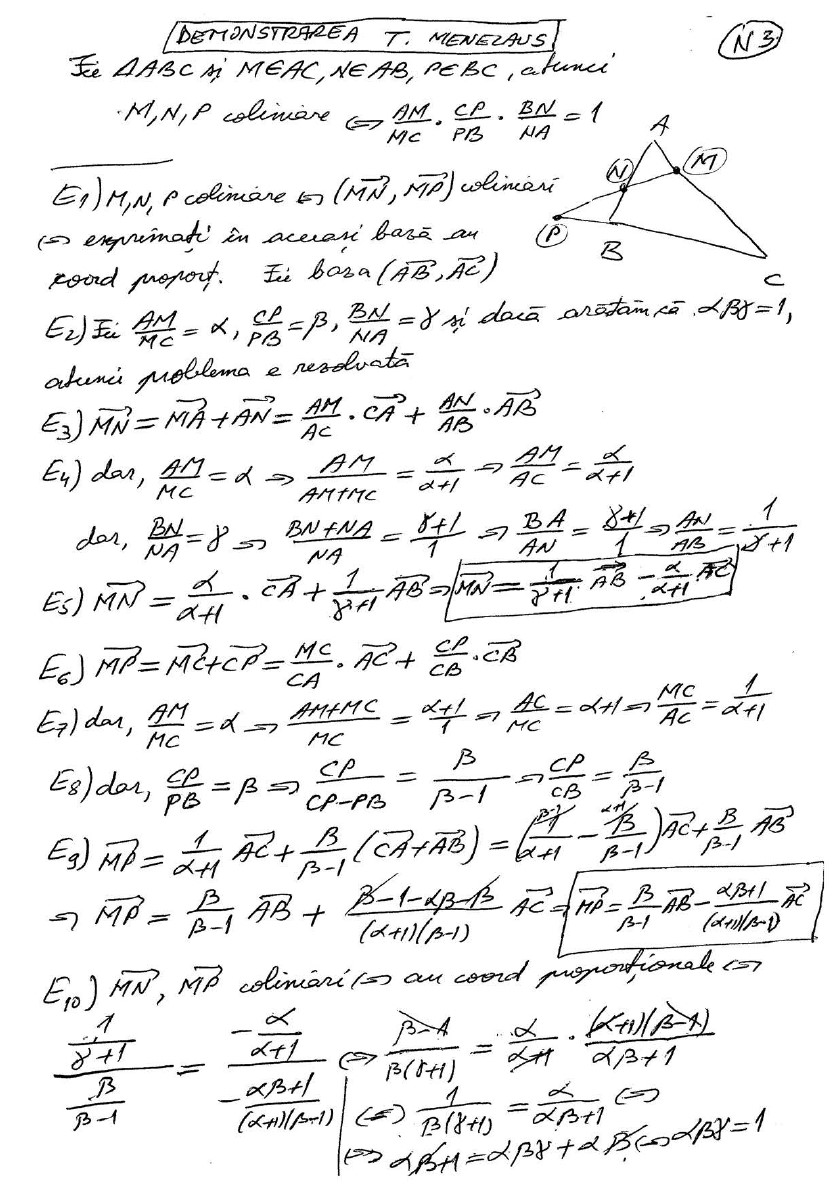 DEMONSTRAREA T. MENELAUS
N3.
Fie ΔABC și M∈AC, N∈AB, P∈BC, atunci
M, N, P coliniare ⇔ AM/MC · CP/PB · BN/NA = 1
A
N
M
P
B
C
E1) M, N, P coliniare ⇔ (MN→, MP→) coliniari
⇔ exprimați în aceeași bază au
coord proporț. Fie baza (AB→, AC→)
E2) Fie AM/MC = α, CP/PB = β, BN/NA = γ și dacă arătăm că αβγ=1,
atunci problema e rezolvată
E3) MN→ = MA→ + AN→ = AM/AC · CA→ + AN/AB · AB→
E4) dar, AM/MC = α ⇒ AM/(AM+MC) = α/(α+1) ⇒ AM/AC = α/(α+1)
dar, BN/NA = γ ⇒ (BN+NA)/NA = (γ+1)/1 ⇒ BA/AN = (γ+1)/1 ⇒ AN/AB = 1/(γ+1)
E5) MN→ = α/(α+1) · CA→ + 1/(γ+1) AB→ ⇒ MN→ = 1/(γ+1) AB→ - α/(α+1) AC→
E6) MP→ = MC→ + CP→ = MC/CA · AC→ + CP/CB · CB→
E7) dar, AM/MC = α ⇒ (AM+MC)/MC = (α+1)/1 ⇒ AC/MC = α+1 ⇒ MC/AC = 1/(α+1)
E8) dar, CP/PB = β ⇒ CP/(CP-PB) = β/(β-1) ⇒ CP/CB = β/(β-1)
E9) MP→ = 1/(α+1) AC→ + β/(β-1) (CA→ + AB→) = (β-1) 1/(α+1) - (α+1) β/(β-1)) AC→ + β/(β-1) AB→
⇒ MP→ = β/(β-1) AB→ + (β-1-αβ-β)/((α+1)(β-1)) AC→ ⇒ MP→ = β/(β-1) AB→ - (αβ+1)/((α+1)(β-1)) AC→
E10) MN→, MP→ coliniari ⇔ au coord proporționale ⇔
(1/(γ+1))/(β/(β-1)) = (-α/(α+1))/(-(αβ+1)/((α+1)(β-1))) ⇔ (β-1)/(β(γ+1)) = α/(α+1) · ((α+1)(β-1))/(αβ+1)
⇔ 1/(β(γ+1)) = α/(αβ+1) ⇔
⇔ αβ+1 = αβγ + αβ ⇔ αβγ=1